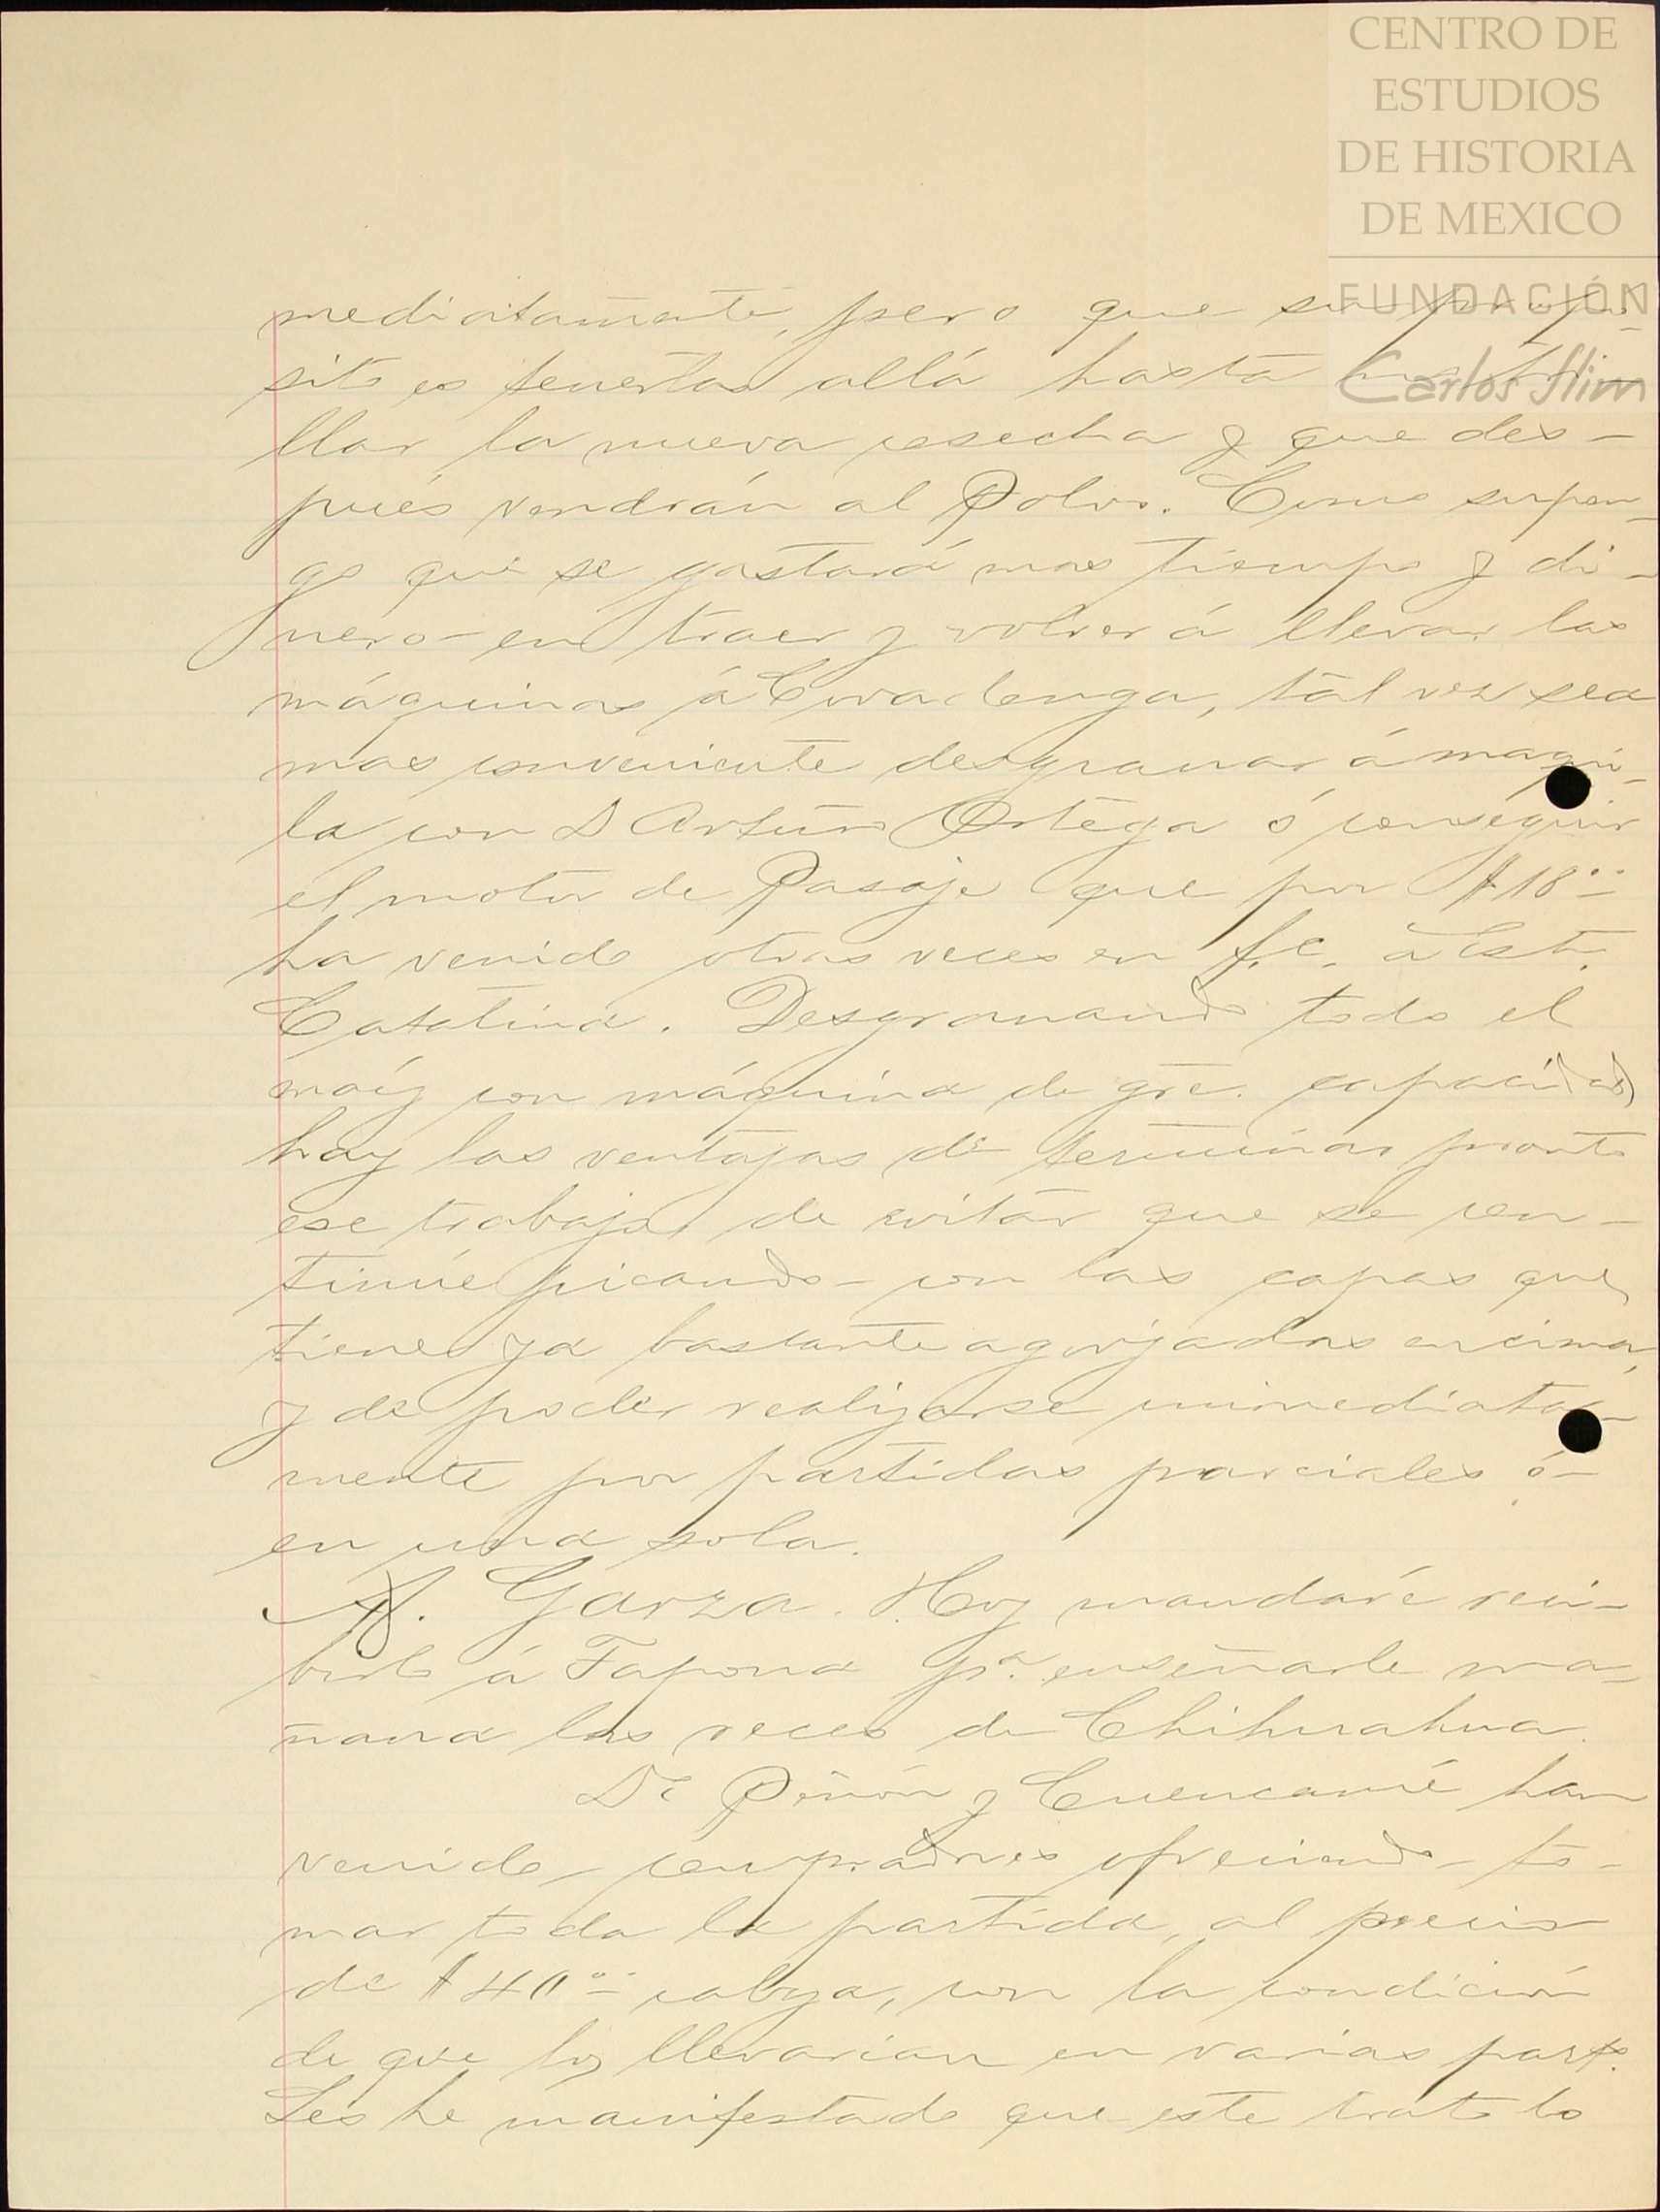 CENTRO DE
ESTUDIOS
DE HISTORIA
DE MEXICO
FUNDACIÓN
Carlos Slim
mediatamente, pero que su propó-
sito es tenerlas allá hasta
llar la nueva cosecha y que des-
pués vendrán al Polvo. Como supon-
go que se gastará mas tiempo y di-
nero en traer y volver á llevar las
máquinas á Covadonga, tal vez sea
mas conveniente desgranar á maqui-
la con D Arturo Ortega ó conseguir
el motor de Pasaje que por $18°°
ha venido otras veces en f.c. á Est.
Catalina. Desgranando todo el
maiz con máquina de gre. capacidad
hay las ventajas de terminar pronto
ese trabajo, de evitar que se con-
tinúe picando con las capas que
tiene ya bastante agorjadas encima,
y de poder realizarse inmediata-
mente por partidas parciales ó
en una sola.
A. Garza. Hoy mandaré reci-
birlo á Tapona pa. enseñarle ma-
ñana las reces de Chihuahua.
De Peñón y Cuencamé han
venido compradores ofreciendo to-
mar toda la partida, al precio
de $40°° cabza, con la condición
de que los llevarian en varias part.
Les he manifestado que este trato lo